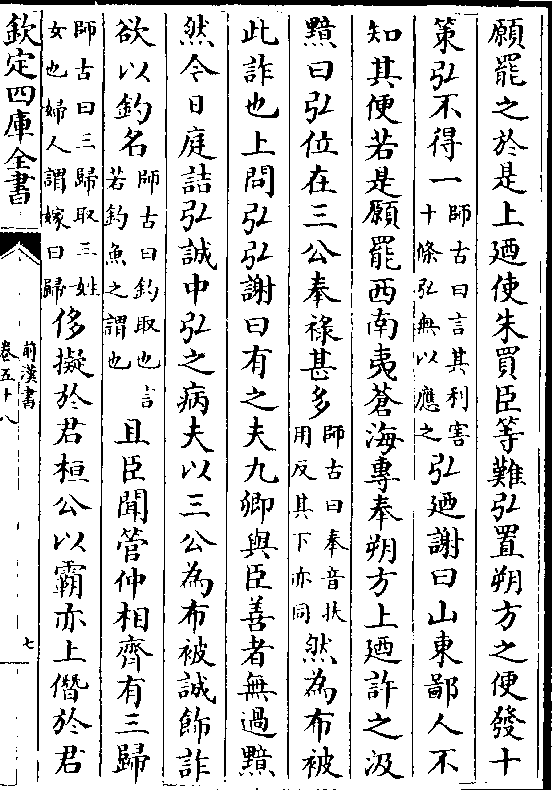 願罷之於是上廼使朱買臣等難弘置朔方之便發十
策弘不得一師古曰言其利害十條弘無以應之弘廼謝曰山東鄙人不
知其便若是願罷西南夷蒼海專奉朔方上廼許之汲
黯曰弘位在三公奉祿甚多師古曰奉音扶用反其下亦同然為布被
此詐也上問弘弘謝曰有之夫九卿與臣善者無過黯
然今日庭詰弘誠中弘之病夫以三公為布被誠飾詐
欲以釣名師古曰釣取也言若釣魚之謂也且臣聞管仲相齊有三歸
師古曰三歸取三姓女也婦人謂嫁曰歸侈擬於君桓公以霸亦上僭於君
欽定四庫全書
前漢書
卷五十八
七